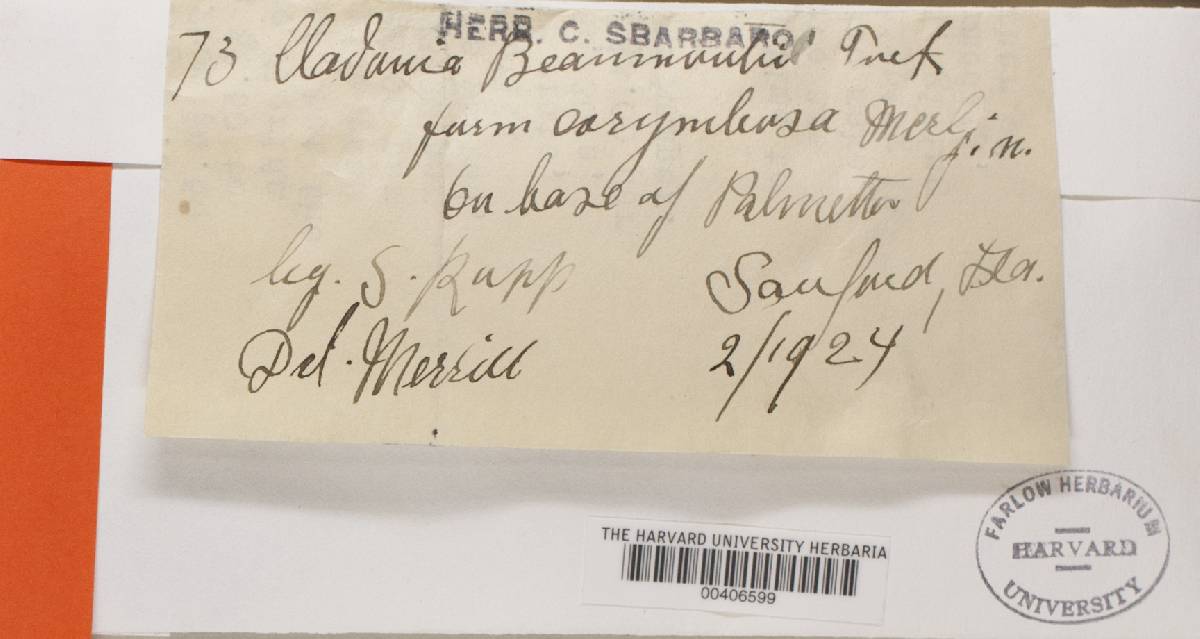 HERB. C. SBARBARO
73 Cladonia Beaumontii Tuck
form corymbosa Merl f. n.
On base of Palmetto
leg. S. Rapp Sanford, Fla.
Det. Merrill 2/1924
THE HARVARD UNIVERSITY HERBARIA
00406599
FARLOW HERBARIUM
HARVARD
UNIVERSITY